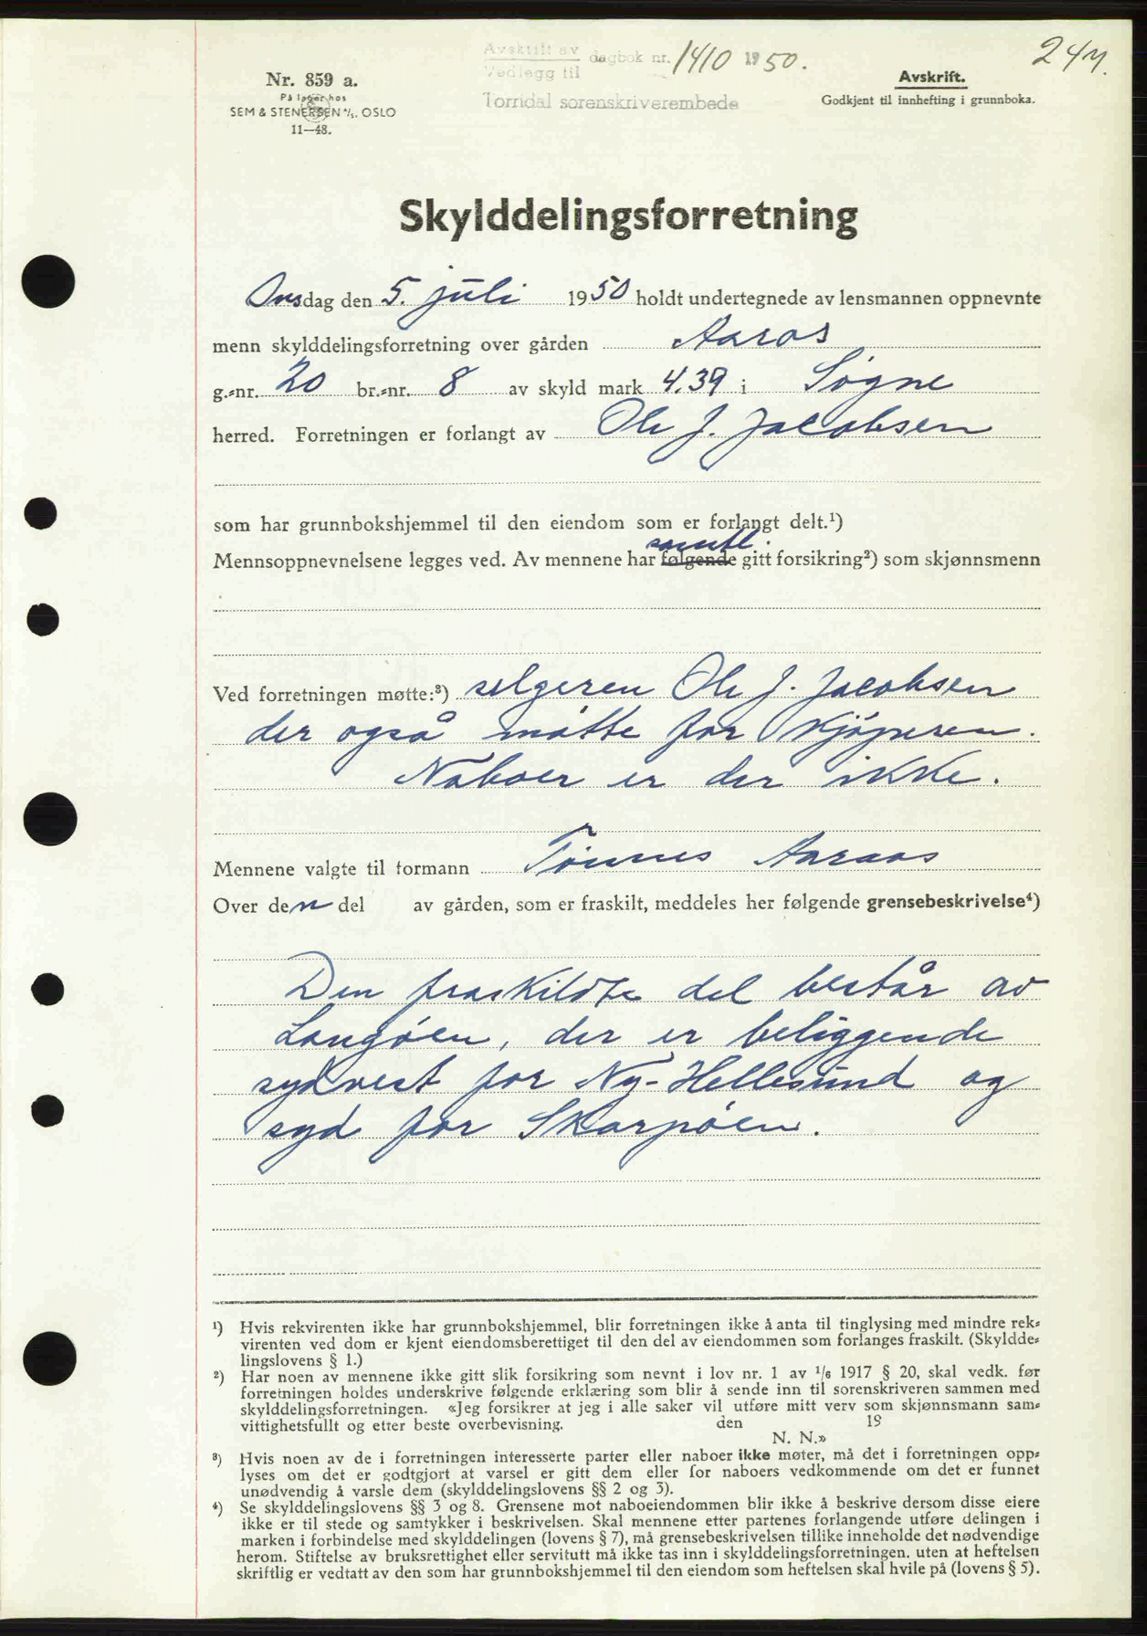 Avskrift av
Vedlegg til
dagbok nr. 1410 1950.
Torridal sorenskriverembede
247.
Nr. 859 a.
På lager hos
SEM & STENERSEN A/S. OSLO
11—48.
Avskrift.
Godkjent til innhefting i grunnboka.
Skylddelingsforretning
Onsdag den 5. juli 1950 holdt undertegnede av lensmannen oppnevnte
menn skylddelingsforretning over gården Aaros
g.-nr. 20 br.-nr. 8 av skyld mark 4.39 i Søgne
herred. Forretningen er forlangt av Ole J. Jacobsen
som har grunnbokshjemmel til den eiendom som er forlangt delt.¹)
samtl.
Mennsoppnevnelsene legges ved. Av mennene har følgende gitt forsikring²) som skjønnsmenn
Ved forretningen møtte:³) selgeren Ole J. Jacobsen
der også møtte for kjøperen.
Naboer er der ikke.
Mennene valgte til formann Tønnes Aaraas
Over den del av gården, som er fraskilt, meddeles her følgende grensebeskrivelse⁴)
Den fraskildte del består av
Langøen, der er beliggende
sydvest for Ny-Hellesund og
syd for Skarpøen.
¹) Hvis rekvirenten ikke har grunnbokshjemmel, blir forretningen ikke å anta til tinglysing med mindre rek-
virenten ved dom er kjent eiendomsberettiget til den del av eiendommen som forlanges fraskilt. (Skyldde-
lingslovens § 1.)
²) Har noen av mennene ikke gitt slik forsikring som nevnt i lov nr. 1 av ¹/₆ 1917 § 20, skal vedk. før
forretningen holdes underskrive følgende erklæring som blir å sende inn til sorenskriveren sammen med
skylddelingsforretningen. «Jeg forsikrer at jeg i alle saker vil utføre mitt verv som skjønnsmann sam-
vittighetsfullt og etter beste overbevisning. den 19
N. N.»
³) Hvis noen av de i forretningen interesserte parter eller naboer ikke møter, må det i forretningen opp-
lyses om det er godtgjort at varsel er gitt dem eller for naboers vedkommende om det er funnet
unødvendig å varsle dem (skylddelingslovens §§ 2 og 3).
⁴) Se skylddelingslovens §§ 3 og 8. Grensene mot naboeiendommen blir ikke å beskrive dersom disse eiere
ikke er til stede og samtykker i beskrivelsen. Skal mennene etter partenes forlangende utføre delingen i
marken i forbindelse med skylddelingen (lovens § 7), må grensebeskrivelsen tillike inneholde det nødvendige
herom. Stiftelse av bruksrettighet eller servitutt må ikke tas inn i skylddelingsforretningen, uten at heftelsen
skriftlig er vedtatt av den som har grunnbokshjemmel til den eiendom som heftelsen skal hvile på (lovens § 5).